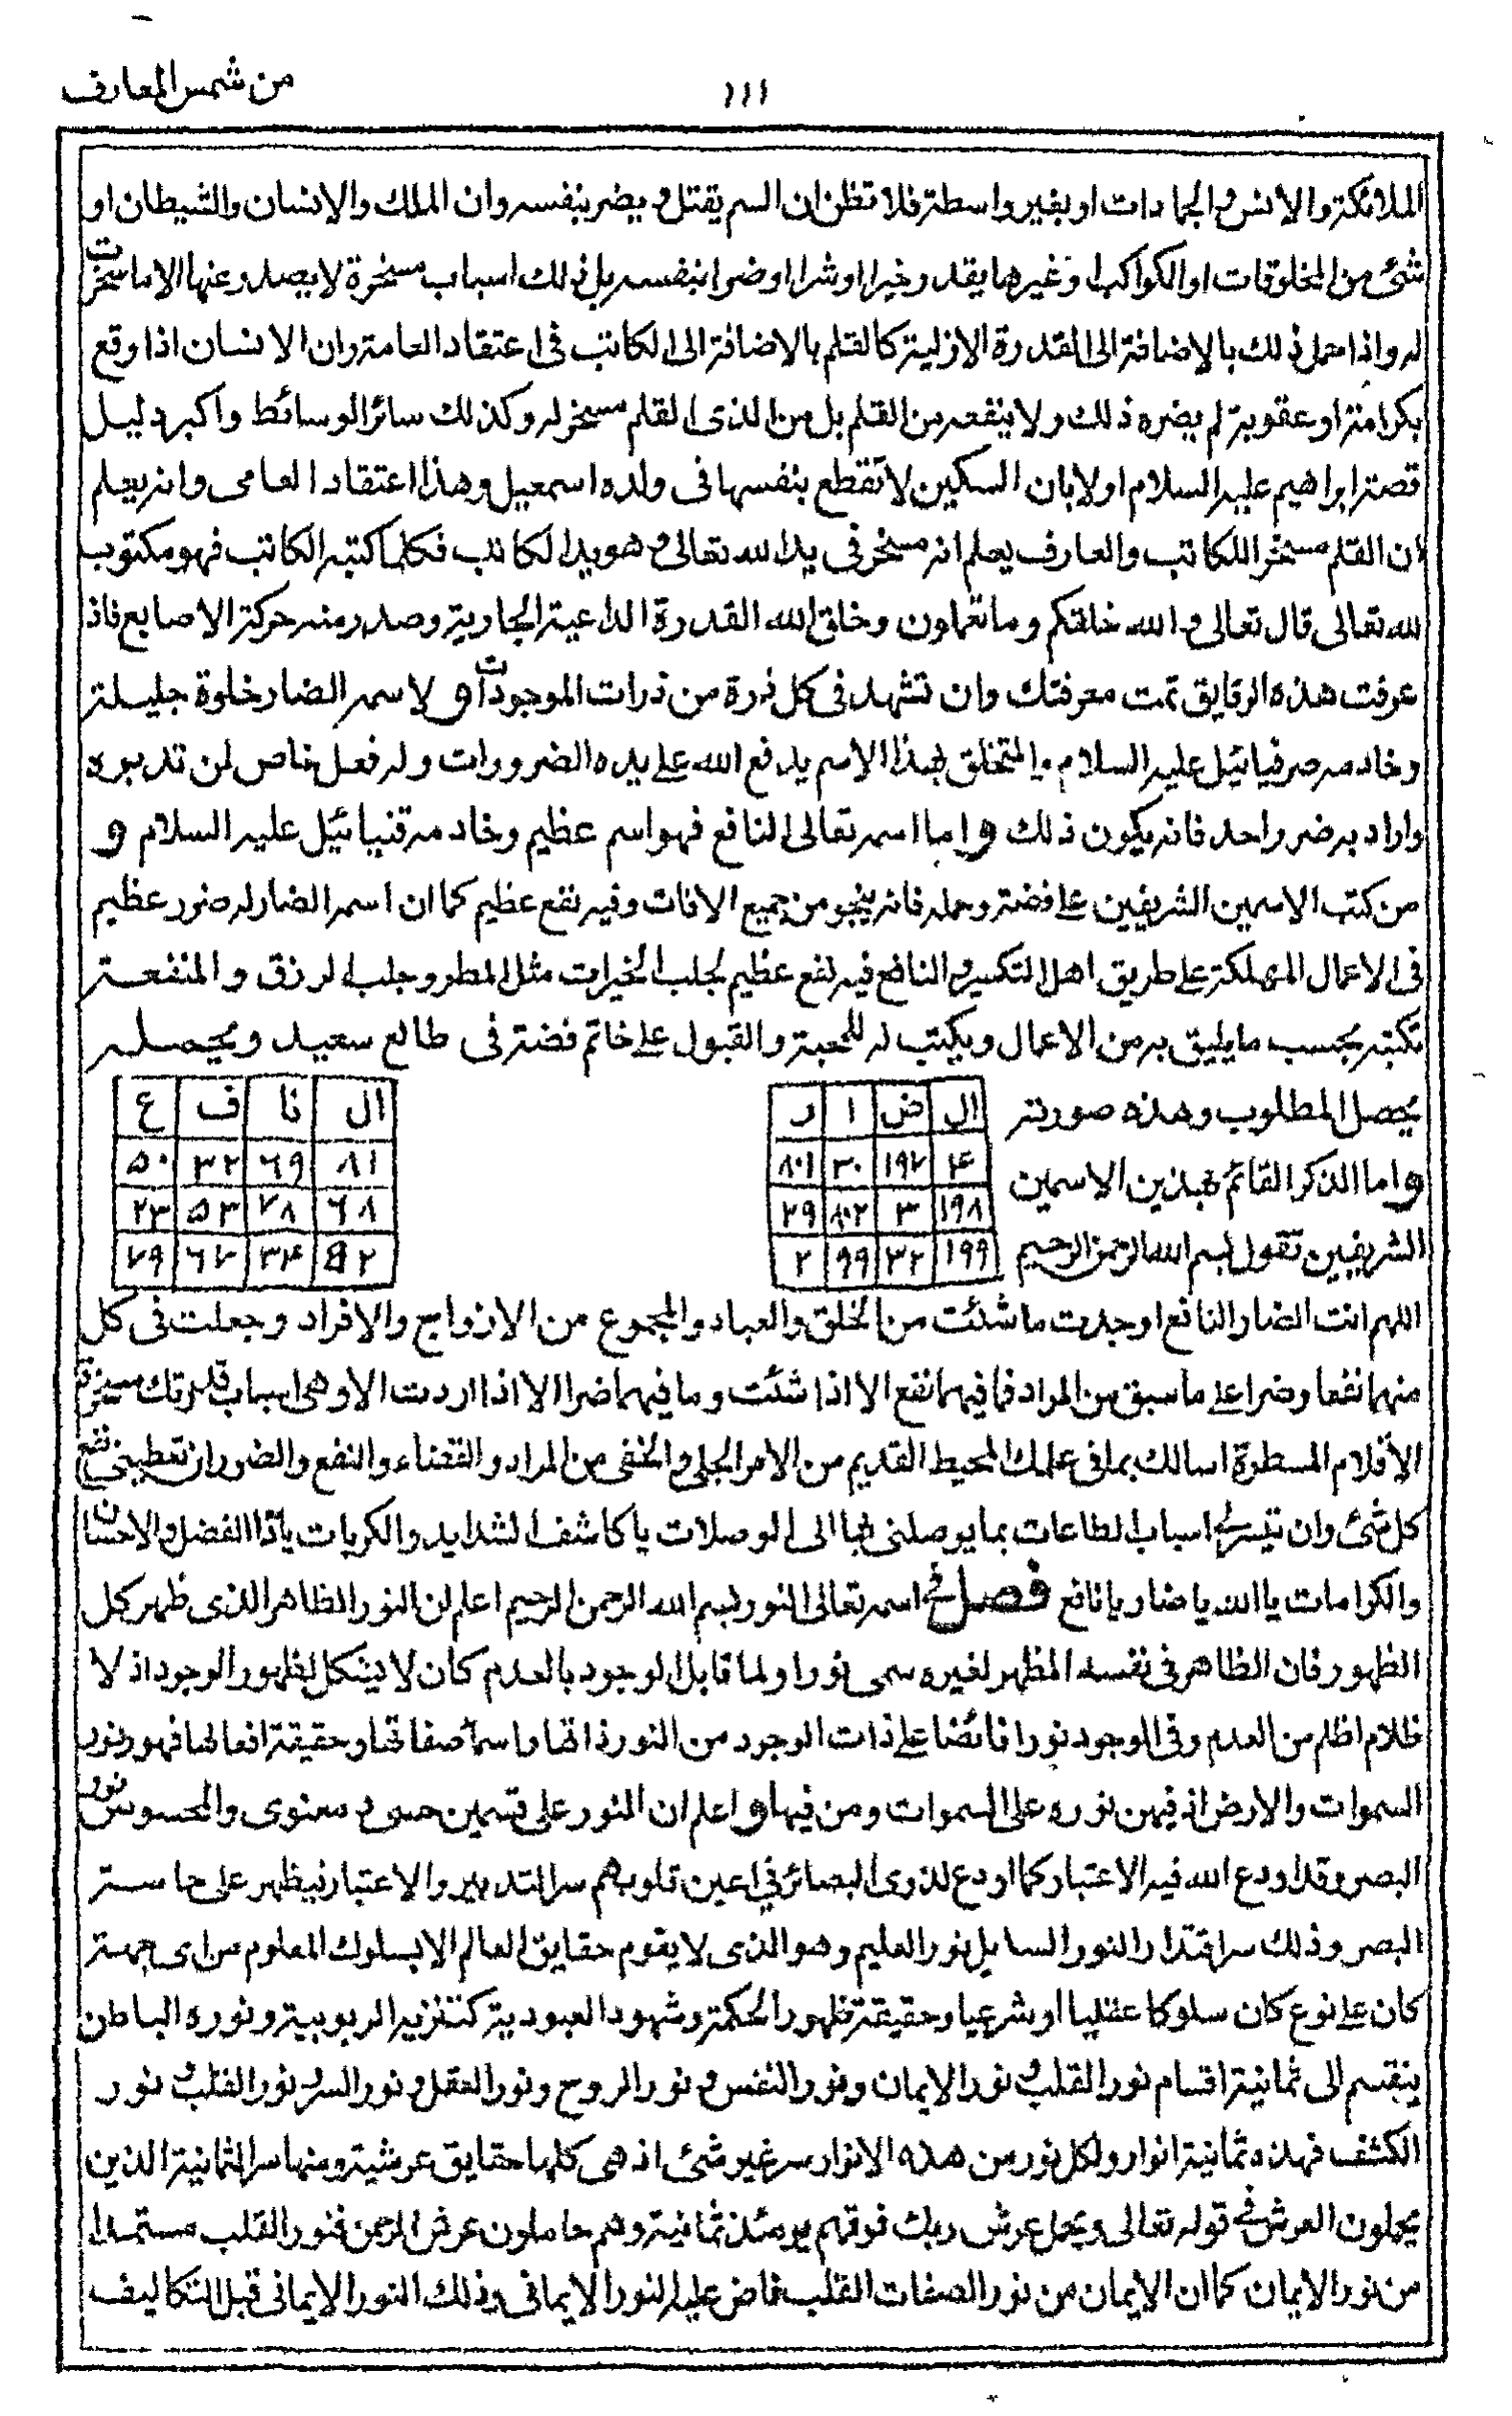 من شمس المعارف
١١١
الملائكة والانس والجمادات او بغير واسطة فلا تظن ان السم يقتل ويضر بنفسه وان الملك والانسان والشيطان او
شئ من المخلوقات او الكواكب او غيرها يقدر وخيرا او شرا او ضرا بنفسه بل ذلك اسباب مسخرة لا يصدر عنها الا ما سخرت
له واذا حمل ذلك بالاضافة الى القدرة الازلية كالقلم بالاضافة الى الكاتب فى اعتقاد العامة وان الانسان اذا وقع
بكرامة او عقوبة لم يضره ذلك ولا ينفعه من القلم بل من الذى القلم مسخر له وكذلك سائر الوسائط واكبر دليل
قصة ابراهيم عليه السلام اولا بان السكين لا تقطع بنفسها فى ولده اسمعيل وهذا اعتقاد العامى وانه يعلم
ان القلم مسخر للكاتب والعارف يعلم انه مسخر فى يد الله تعالى وهو يد الكاتب فكلما كتبه الكاتب فهو مكتوب
لله تعالى قال تعالى والله خلقكم وما تعملون وخلق الله القدرة الداعية الجارية وصدر منه حركة الاصابع فاذا
عرفت هذه الرقايق تمت معرفتك وان تشهد فى كل ذرة من ذرات الموجودات و لاسمه الضار خلوة جليلة
وخادمه صرفيائيل عليه السلام والمتخلق بهذا الاسم يدفع الله على يده الضرورات وله فعل خاص لمن تدبره
واراد به ضر واحد فانه يكون ذلك واما اسمه تعالى النافع فهو اسم عظيم وخادمه قنيائيل عليه السلام و
من كتب الاسمين الشريفين على فضة وحمله فانه ينجو من جميع الافات وفيه نفع عظيم كما ان اسمه الضار له ضرر عظيم
فى الاعمال المهلكة على طريق اهل التكسير والنافع فيه نفع عظيم لجلب الخيرات مثل المطر وجلب الرزق والمنفعة
تكتبه بحسب ما يليق به من الاعمال ويكتب له للمحبة والقبول على خاتم فضة فى طالع سعيد ويحمله
يحصل المطلوب وهذه صورته
ال ض ا ر
۴ ١٩٧ ٣٠ ٨٠١
١٩٨ ٣ ٨٠٢ ٢٩
١٩٩ ٣٢ ٩٩ ٢
ال نا ف ع
٨١ ٦٩ ٣٢ ٥٠
٦٨ ٧٨ ٥٣ ٢٣
٢ ٣۴ ٦٧ ٧٩
واما الذكر القائم بهذين الاسمين
الشريفين تقول بسم الله الرحمن الرحيم
اللهم انت الضار النافع اوجدت ما شئت من الخلق والعباد والمجموع من الازواج والافراد وجعلت فى كل
منهما نفعا وضرا على ما سبق من المراد فما فيهما نفع الا اذا شئت وما فيهما ضرا الا اذا اردت الا وهى اسباب قدرتك مسخرة
الاقلام المسطرة اسالك بما فى علمك المحيط القديم من الامر الجلى والخفى من المراد والقضاء والنفع والضر وان تعطينى نفع
كل شئ وان تيسر لى اسباب الطاعات بما يوصلنى بها الى الوصلات يا كاشف الشدايد والكربات يا ذا الفضل والاحسان
والكرامات يا الله يا ضار يا نافع فصل فى اسمه تعالى النور بسم الله الرحمن الرحيم اعلم ان النور الظاهر الذى ظهر بكل
الظهور فان الظاهر فى نفسه المظهر لغيره سمى نورا ولما قابل الوجود بالعدم كان لا يشكل لظهور الوجود اذ لا
ظلام اظلم من العدم وفى الوجود نورا فائضا على ذات الوجود من النور ذاتها واسما صفاتها وحقيقة افعالها فهو نور
السموات والارض اذ فيهن نوره على السموات ومن فيها و اعلم ان النور على قسمين حسى ومعنوى والمحسوس نور
البصر وقد اودع الله فيه الاعتبار كما اودع لذوى البصائر فى اعين قلوبهم سر التدبير والاعتبار فيظهر على حاسة
البصر وذلك سر اقتدار النور السابل نور العليم وهو الذى لا يقوم حقايق العالم الا بسلوك المعلوم من اى جهة
كان على نوع كان سلوكا عقليا او شرعيا وحقيقة ظهور الحكمة وشهود العبودية كتنزيه الربوبية ونوره الباطن
ينقسم الى ثمانية اقسام نور القلب و نور الايمان ونور النفس و نور الروح ونور العقل و نور السر و نور القلب و نور
الكشف فهذه ثمانية انوار ولكل نور من هذه الانوار سر غير شئ اذ هى كلها حقايق عرشية ومنها سر الثمانية الذين
يحملون العرش فى قوله تعالى ويحمل عرش ربك فوقهم يومئذ ثمانية وهم حاملون عرش الرحمن فنور القلب مستمدا
من نور الايمان كما ان الايمان من نور الصفات القلب فاض عليه النور الايمانى وذلك النور الايمانى قبل التكاليف